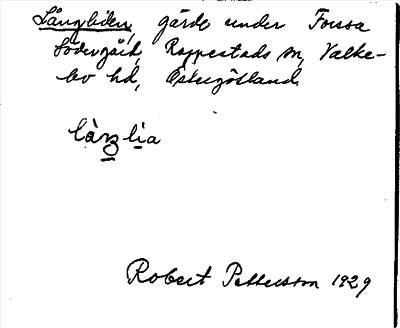 Långliden, gärde under Forssa
Södergård, Rappestads sn, Valke-
bo hd, Östergötland.
làŋlia
Robert Pettersson 1929